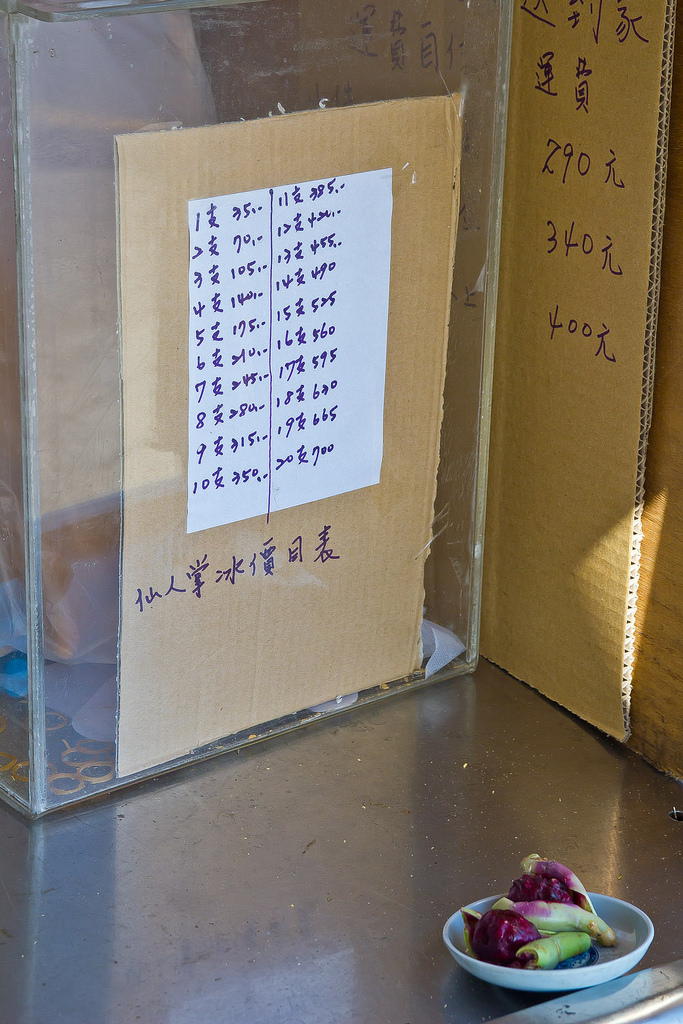 1支 35.-
2支 70.-
3支 105.-
4支 140.-
5支 175.-
6支 210.-
7支 245.-
8支 280.-
9支 315.-
10支 350.-
11支 385.-
12支 420.-
13支 455.-
14支 490
15支 525
16支 560
17支 595
18支 630
19支 665
20支 700
仙人掌冰價目表
運費自付
送到家
運費
290元
340元
400元